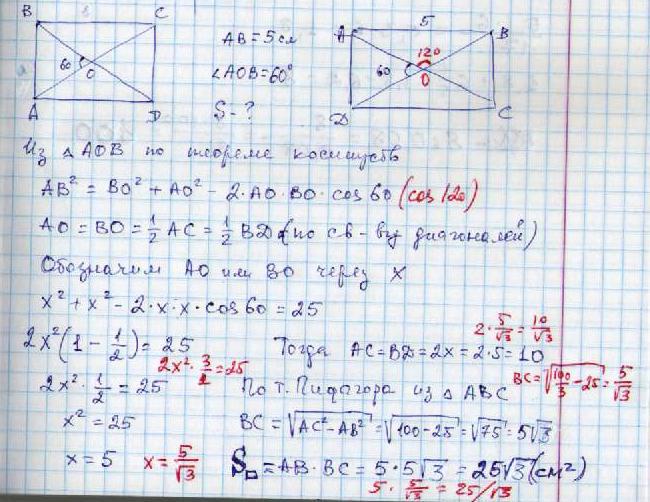 B C
60
O
A D
AB = 5 см
∠AOB = 60°
S - ?
5
A B
120
60
O
D C
Из △ AOB по теореме косинусов
AB² = BO² + AO² - 2·AO·BO·cos 60 (cos 120)
AO = BO = 1/2 AC = 1/2 BD (по св-ву диагоналей)
Обозначим AO или BO через x
x² + x² - 2·x·x·cos 60 = 25
2·5/√3 = 10/√3
2x²(1 - 1/2) = 25 Тогда AC = BD = 2x = 2·5 = 10
2x²·3/2 = 25
BC = √(100/3 - 25) = 5/√3
2x²·1/2 = 25 По т. Пифагора из △ ABC
x² = 25 BC = √(AC² - AB²) = √(100 - 25) = √75 = 5√3
x = 5 x = 5/√3 S▭ = AB·BC = 5·5√3 = 25√3 (см²)
5·5/√3 = 25/√3